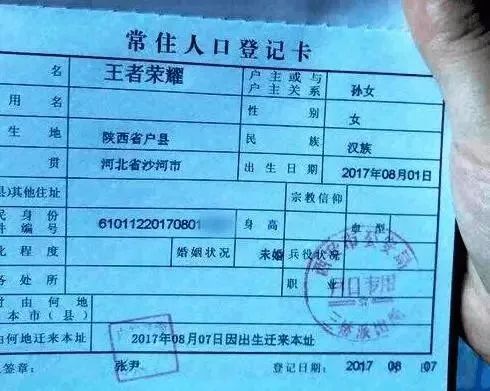 常住人口登记卡
名 王者荣耀 户主或与户主关系 孙女
用名 性别 女
生地 陕西省户县 民族 汉族
贯 河北省沙河市 出生日期 2017年08月01日
县)其他住址 宗教信仰
民身份件编号 61011220170801 身高 血型
化程度 婚姻状况 未婚 兵役状况
务处所 职业
时由何地本市(县)
何地迁来本址 2017年08月07日因出生迁来本址
签章: 张尹 登记日期: 2017 08 07
户口专用